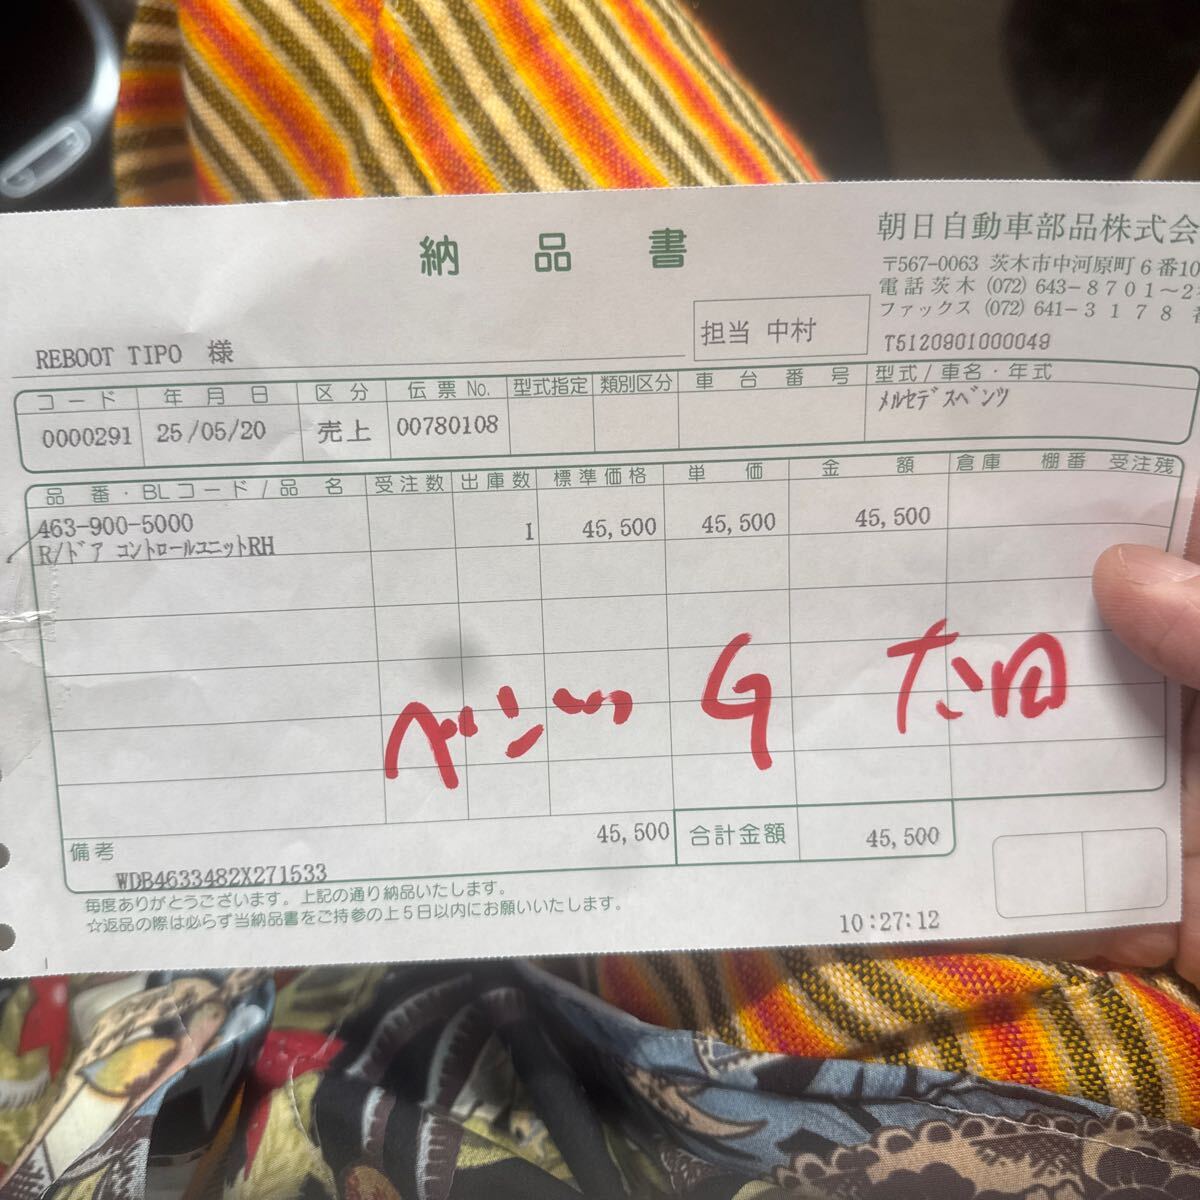 納品書
朝日自動車部品株式会
〒567-0063 茨木市中河原町6番10
電話茨木 (072) 643-8701〜2
ファックス (072) 641-3178
T5120901000049
担当 中村
REBOOT TIPO 様
コード 年月日 区分 伝票No. 型式指定 類別区分 車台番号 型式/車名・年式
0000291 25/05/20 売上 00780108 メルセデスベンツ
品番・BLコード/品名 受注数 出庫数 標準価格 単価 金額 倉庫 棚番 受注残
463-900-5000 1 45,500 45,500 45,500
R/ドア コントロールユニットRH
ベンツ G 太田
備考 45,500 合計金額 45,500
WDB4633482X271533
毎度ありがとうございます。上記の通り納品いたします。
☆返品の際は必らず当納品書をご持参の上5日以内にお願いいたします。
10:27:12